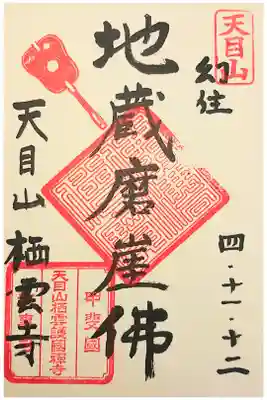 天目山
幻住
四・十一・十二
地蔵磨崖佛
天目山 栖雲寺
甲斐國
天目山栖雲護國禅寺